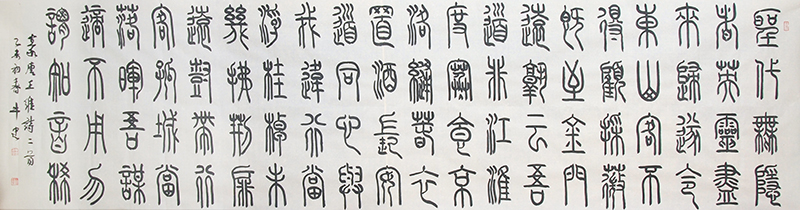 聖代無隱
者英靈盡
來歸遂令
東山客不
得顧採薇
既至金門
遠孰云吾
道非江淮
度寒食京
洛縫春衣
置酒長安
道同心與
我違行當
浮桂棹未
幾拂荊扉
遠樹帶行
客孤城當
落暉吾謀
適不用勿
謂知音稀
唐王維詩二首
初春